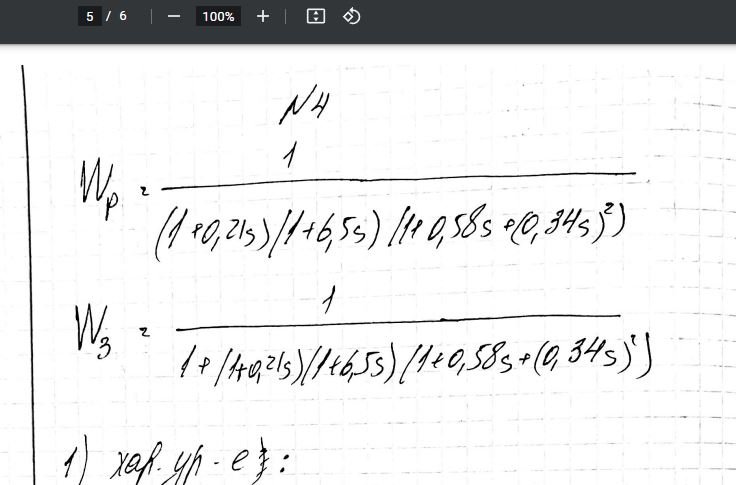 5 / 6 100%
N4
Wp = 1 / (1+0,21s)(1+6,5s)(1+0,58s+(0,34s)²)
W3 = 1 / 1+(1+0,21s)(1+6,5s)(1+0,58s+(0,34s)²)
1) хар. ур-е з: